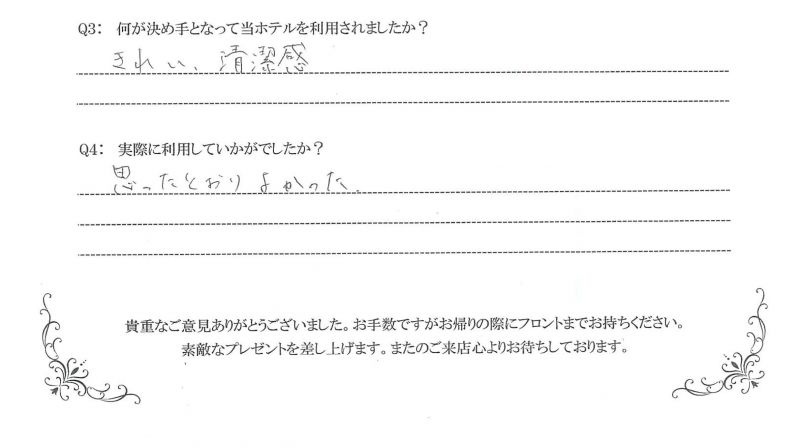 Q3: 何が決め手となって当ホテルを利用されましたか？
きれい、清潔感
Q4: 実際に利用していかがでしたか？
思ったとおりよかった。
貴重なご意見ありがとうございました。お手数ですがお帰りの際にフロントまでお持ちください。
素敵なプレゼントを差し上げます。またのご来店心よりお待ちしております。